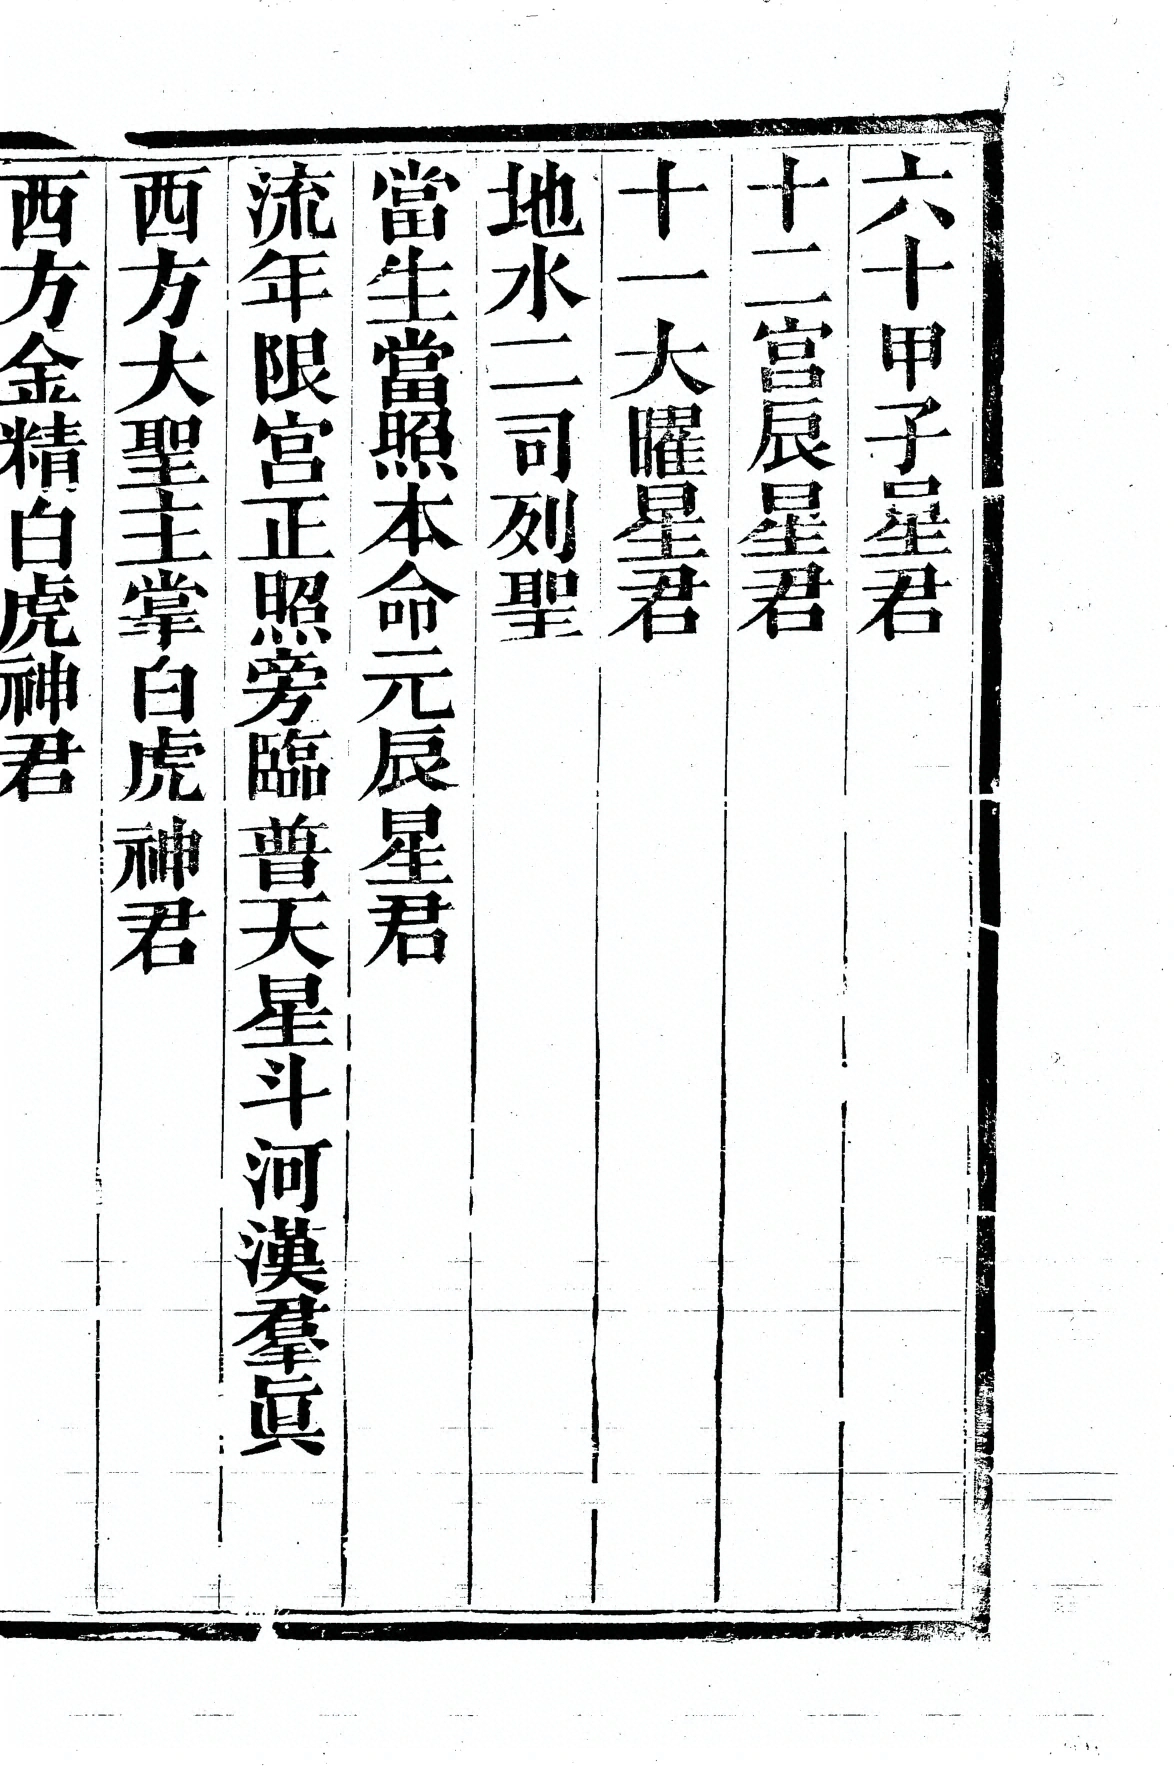 六十甲子星君
十二宮辰星君
十一大曜星君
地水二司列聖
當生當照本命元辰星君
流年限宮正照旁臨普天星斗河漢羣眞
西方大聖主掌白虎神君
西方金精白虎神君